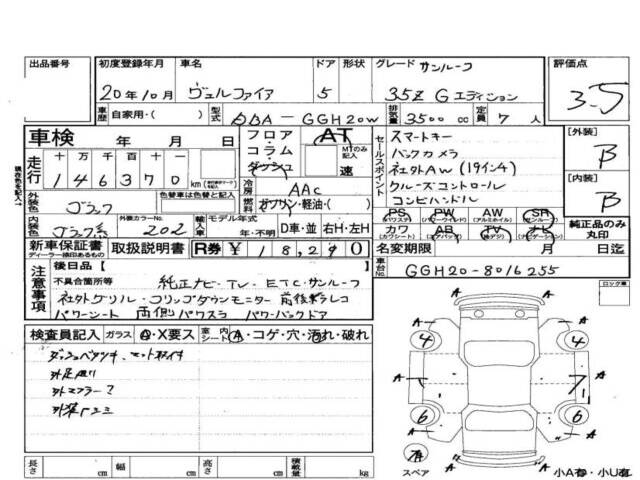 出品番号 初度登録年月 車名 ドア 形状 グレード サンルーフ 評価点
20年10月 ヴェルファイア 5 3.5Z Gエディション 3.5
車歴 自家用・( ) 型式 DBA-GGH20W 排気量 3500 cc 定員 7 人
車検 年 月 日 フロア・コラム・ダッシュ AT MTのみ記入 速
走行 十 万 千 百 十 一
146370 km
現在色を記入→
外装色 ブラック 色替車は色替と記入
冷房 AAC
燃料 ガソリン・軽油・( )
内装色 ブラック系 外装カラーNo. 202 輸入車 モデル年式 年・不明 D車・並 右H・左H
新車保証書 ディーラー捺印あるもの 取扱説明書 R券 ¥18,290
セールスポイント
スマートキー
バックカメラ
社外AW(19インチ)
クルーズコントロール
コンビハンドル
[外装] B
[内装] B
PS (パワステ) PW (パワーウインド) AW (アルミホイル) SR (サンルーフ)
カワ (カワシート) AB (エアバック) TV (純正) ナビ (ナビゲーション)
純正品のみ丸印
名変期限 月 日迄
車台No. GGH20-8016255
注意事項
後日品[ ]
不具合箇所等 純正ナビ・TV・ETC・サンルーフ
社外グリル・フリップダウンモニター 前後ドラレコ
パワーシート 両側パワスラ パワーバックドア
ロック車
検査員記入 ガラス A・X要ス 室内 シート A・コゲ・穴・汚れ・破れ
外マフラー
A A A A A A A A
4 4
6 6
7
スペア
小A有・小U有
長さ cm 幅 cm 高さ cm 積載量 kg